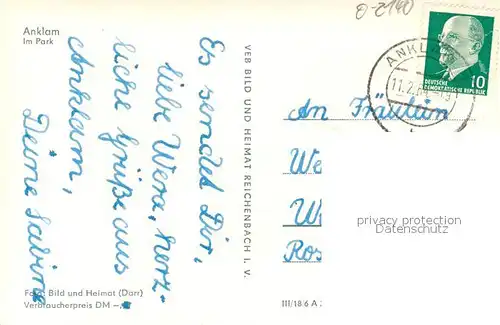 Anklam
Im Park
Es sendet Dir,
liebe Wera, herz-
liche Grüße aus
Anklam,
Deine Sabine
Foto: Bild und Heimat (Darr)
Verbraucherpreis DM
VEB BILD UND HEIMAT REICHENBACH I. V.
III/18/6 A
0-2140
ANKL
11.2.64
10
DEUTSCHE
DEMOKRATISCHE REPUBLIK
An Fräulein
We
W
Ros
privacy protection
Datenschutz